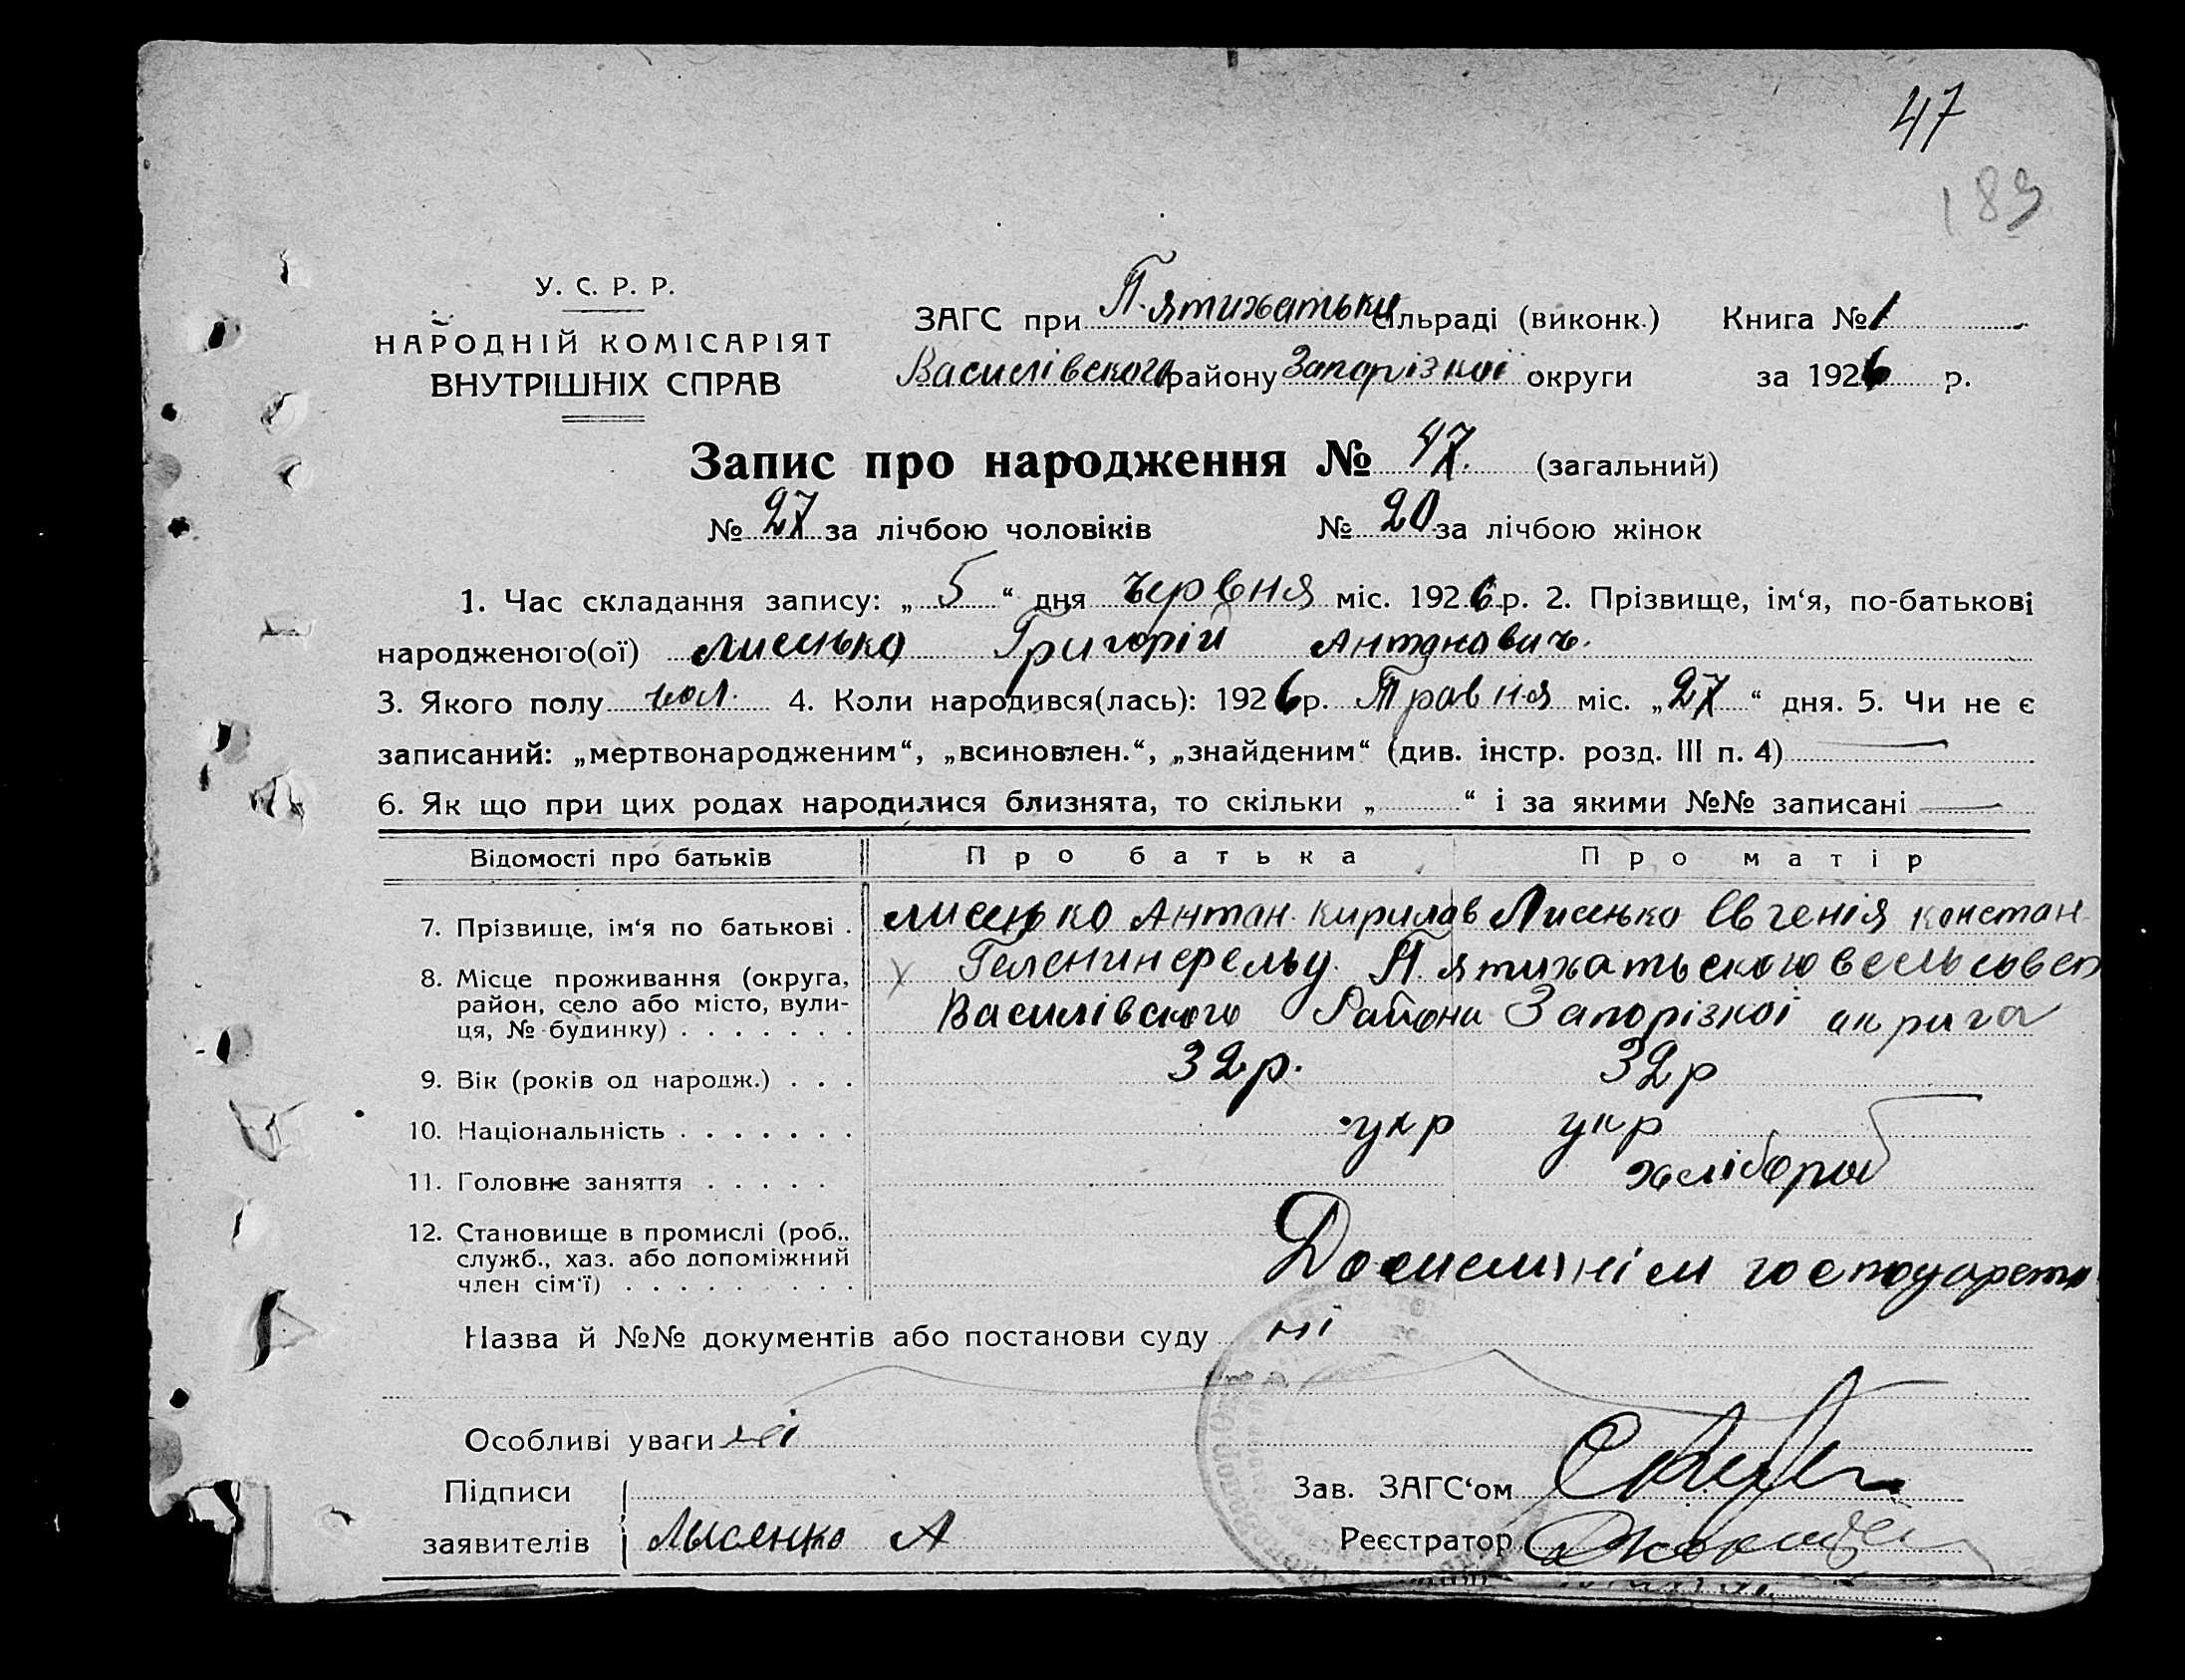 47
183
У. С. Р. Р.
НАРОДНІЙ КОМІСАРІЯТ
ВНУТРІШНІХ СПРАВ
ЗАГС при П.ятихатьки сільраді (виконк.) Книга № 1
Василівского району Запорізкої округи за 1926 р.
Запис про народження № 47. (загальний)
№ 27 за лічбою чоловіків № 20 за лічбою жінок
1. Час складання запису: „ 5 “ дня Червня міс. 1926 р. 2. Прізвище, ім‘я, по-батькові
народженого(ої) Лисенько Григорій Антонавич.
3. Якого полу чол. 4. Коли народився(лась): 1926 р. Травня міс. „27“ дня. 5. Чи не є
записаний: „мертвонародженим“, „всиновлен.“, „знайденим“ (див. інстр. розд. III п. 4)
6. Як що при цих родах народилися близнята, то скільки „ “ і за якими №№ записані
Відомості про батьків Про батька Про матір
7. Прізвище, ім‘я по батькові . Лисенько Антан. Кирилав Лисенько Євгенія Констан
8. Місце проживання (округа, П.ятихатьского
район, село або місто, вули-
ця, № будинку) . . . . . . . Василівского Района Запорізкої
9. Вік (років од народж.) . . . 32 р. 32 р
10. Національність . . . . . . . укр укр
11. Головне заняття . . . . . хлібороб
12. Становище в промислі (роб.,
служб., хаз. або допоміжний
член сім‘ї) . . . . . . . . .
Назва й №№ документів або постанови суду ні
Особливі уваги ні
Підписи
Зав. ЗАГС‘ом
заявителів Лысенко А
Реєстратор